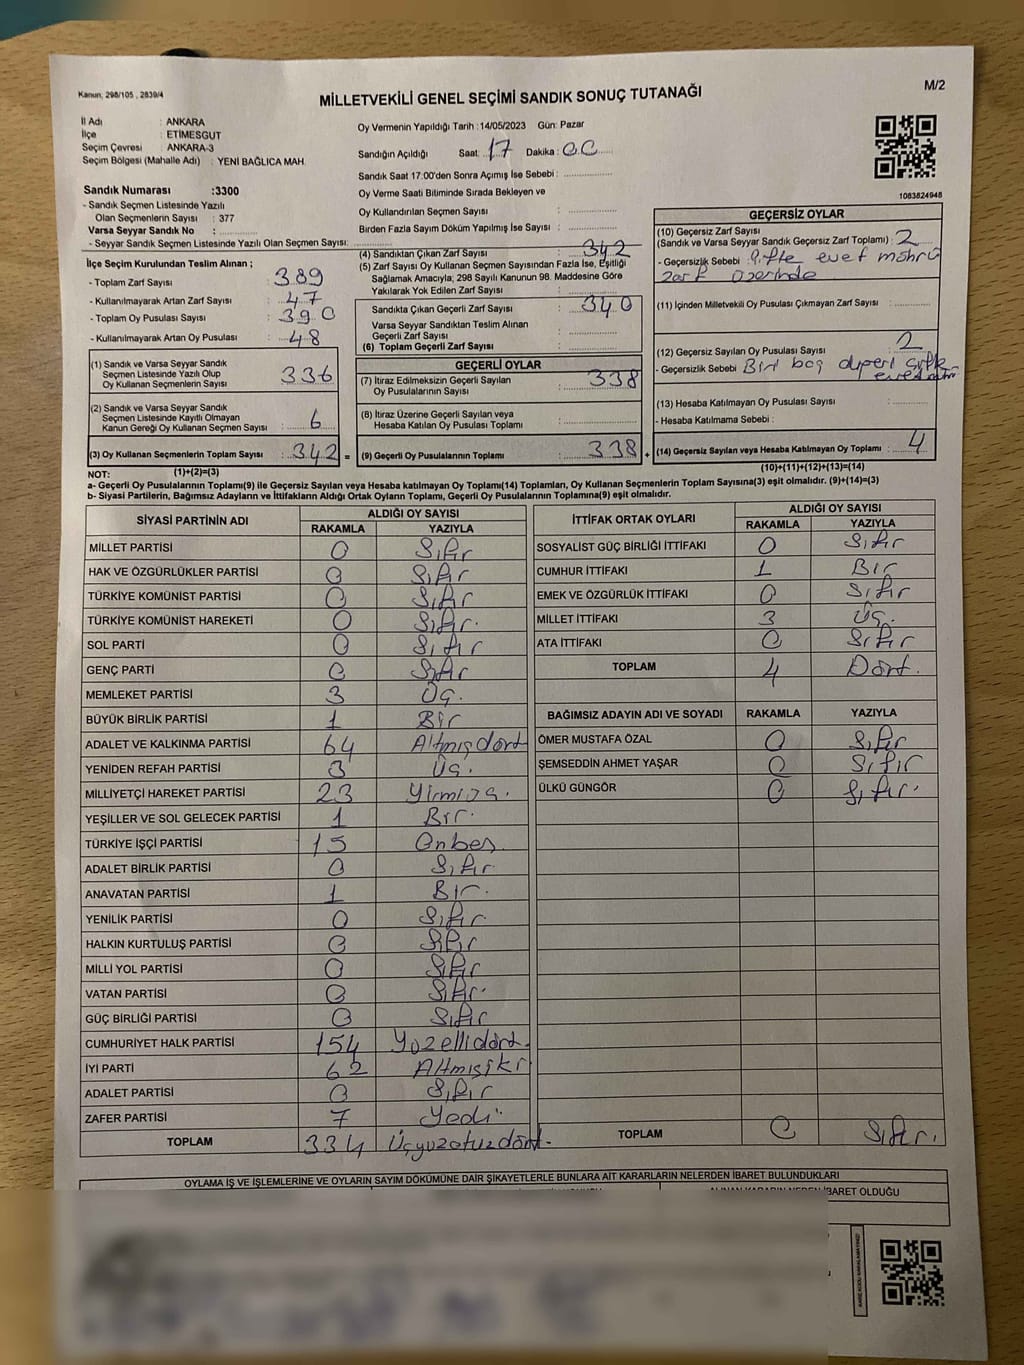 Kanun; 298/105 , 2839/4
MİLLETVEKİLİ GENEL SEÇİMİ SANDIK SONUÇ TUTANAĞI
M/2
İl Adı : ANKARA
İlçe : ETİMESGUT
Seçim Çevresi : ANKARA-3
Seçim Bölgesi (Mahalle Adı) : YENİ BAĞLICA MAH.
Oy Vermenin Yapıldığı Tarih :14/05/2023 Gün: Pazar
Sandığın Açıldığı Saat: 17 Dakika : 00
Sandık Saat 17:00'den Sonra Açımış İse Sebebi :
Oy Verme Saati Bitiminde Sırada Bekleyen ve
Oy Kullandırılan Seçmen Sayısı :
Birden Fazla Sayım Döküm Yapılmış İse Sayısı :
1083824948
Sandık Numarası :3300
- Sandık Seçmen Listesinde Yazılı
Olan Seçmenlerin Sayısı : 377
Varsa Seyyar Sandık No :
- Seyyar Sandık Seçmen Listesinde Yazılı Olan Seçmen Sayısı:
İlçe Seçim Kurulundan Teslim Alınan ;
- Toplam Zarf Sayısı : 389
- Kullanılmayarak Artan Zarf Sayısı : 47
- Toplam Oy Pusulası Sayısı : 390
- Kullanılmayarak Artan Oy Pusulası : 48
(1) Sandık ve Varsa Seyyar Sandık
Seçmen Listesinde Yazılı Olup
Oy Kullanan Seçmenlerin Sayısı : 336
(2) Sandık ve Varsa Seyyar Sandık
Seçmen Listesinde Kayıtlı Olmayan
Kanun Gereği Oy Kullanan Seçmen Sayısı : 6
(3) Oy Kullanan Seçmenlerin Toplam Sayısı : 342 =
(4) Sandıktan Çıkan Zarf Sayısı : 342
(5) Zarf Sayısı Oy Kullanan Seçmen Sayısından Fazla İse, Eşitliği
Sağlamak Amacıyla; 298 Sayılı Kanunun 98. Maddesine Göre
Yakılarak Yok Edilen Zarf Sayısı :
Sandıkta Çıkan Geçerli Zarf Sayısı : 340
Varsa Seyyar Sandıktan Teslim Alınan
Geçerli Zarf Sayısı :
(6) Toplam Geçerli Zarf Sayısı :
GEÇERLİ OYLAR
(7) İtiraz Edilmeksizin Geçerli Sayılan
Oy Pusulalarının Sayısı : 338
(8) İtiraz Üzerine Geçerli Sayılan veya
Hesaba Katılan Oy Pusulası Toplamı :
(9) Geçerli Oy Pusulalarının Toplamı : 338 +
GEÇERSİZ OYLAR
(10) Geçersiz Zarf Sayısı
(Sandık ve Varsa Seyyar Sandık Geçersiz Zarf Toplamı) : 2
- Geçersizlik Sebebi : Çifte evet möhrü
zarf üzerinde
(11) İçinden Milletvekili Oy Pusulası Çıkmayan Zarf Sayısı :
(12) Geçersiz Sayılan Oy Pusulası Sayısı : 2
- Geçersizlik Sebebi Biri boş diğeri çifte
(13) Hesaba Katılmayan Oy Pusulası Sayısı :
- Hesaba Katılmama Sebebi :
(14) Geçersiz Sayılan veya Hesaba Katılmayan Oy Toplamı : 4
NOT: (1)+(2)=(3) (10)+(11)+(12)+(13)=(14)
a- Geçerli Oy Pusulalarının Toplamı(9) ile Geçersiz Sayılan veya Hesaba katılmayan Oy Toplamı(14) Toplamları, Oy Kullanan Seçmenlerin Toplam Sayısına(3) eşit olmalıdır. (9)+(14)=(3)
b- Siyasi Partilerin, Bağımsız Adayların ve İttifakların Aldığı Ortak Oyların Toplamı, Geçerli Oy Pusulalarının Toplamına(9) eşit olmalıdır.
SİYASİ PARTİNİN ADI ALDIĞI OY SAYISI
RAKAMLA YAZIYLA
MİLLET PARTİSİ 0 Sıfır
HAK VE ÖZGÜRLÜKLER PARTİSİ 0 Sıfır
TÜRKİYE KOMÜNİST PARTİSİ 0 Sıfır
TÜRKİYE KOMÜNİST HAREKETİ 0 Sıfır.
SOL PARTİ 0 Sıfır
GENÇ PARTİ 0 Sıfır
MEMLEKET PARTİSİ 3 Üç.
BÜYÜK BİRLİK PARTİSİ 1 Bir
ADALET VE KALKINMA PARTİSİ 64 Altmışdört
YENİDEN REFAH PARTİSİ 3 Üç.
MİLLİYETÇİ HAREKET PARTİSİ 23 Yirmiüç.
YEŞİLLER VE SOL GELECEK PARTİSİ 1 Bir.
TÜRKİYE İŞÇİ PARTİSİ 15 Onbeş
ADALET BİRLİK PARTİSİ 0 Sıfır
ANAVATAN PARTİSİ 1 Bir.
YENİLİK PARTİSİ 0 Sıfır
HALKIN KURTULUŞ PARTİSİ 0 Sıfır
MİLLİ YOL PARTİSİ 0 Sıfır
VATAN PARTİSİ 0 Sıfır.
GÜÇ BİRLİĞİ PARTİSİ 0 Sıfır
CUMHURİYET HALK PARTİSİ 154 Yüzellidört.
İYİ PARTİ 62 Altmışiki
ADALET PARTİSİ 0 Sıfır
ZAFER PARTİSİ 7 Yedi
TOPLAM 334 Üçyüzotuzdört.
İTTİFAK ORTAK OYLARI ALDIĞI OY SAYISI
RAKAMLA YAZIYLA
SOSYALİST GÜÇ BİRLİĞİ İTTİFAKI 0 Sıfır
CUMHUR İTTİFAKI 1 Bir
EMEK VE ÖZGÜRLÜK İTTİFAKI 0 Sıfır
MİLLET İTTİFAKI 3 Üç.
ATA İTTİFAKI 0 Sıfır
TOPLAM 4 Dört.
BAĞIMSIZ ADAYIN ADI VE SOYADI RAKAMLA YAZIYLA
ÖMER MUSTAFA ÖZAL 0 Sıfır
ŞEMSEDDİN AHMET YAŞAR 0 Sıfır
ÜLKÜ GÜNGÖR 0 Sıfır.
TOPLAM 0 Sıfır.
OYLAMA İŞ VE İŞLEMLERİNE VE OYLARIN SAYIM DÖKÜMÜNE DAİR ŞİKAYETLERLE BUNLARA AİT KARARLARIN NELERDEN İBARET BULUNDUKLARI
ALINAN KARARIN NEDEN İBARET OLDUĞU